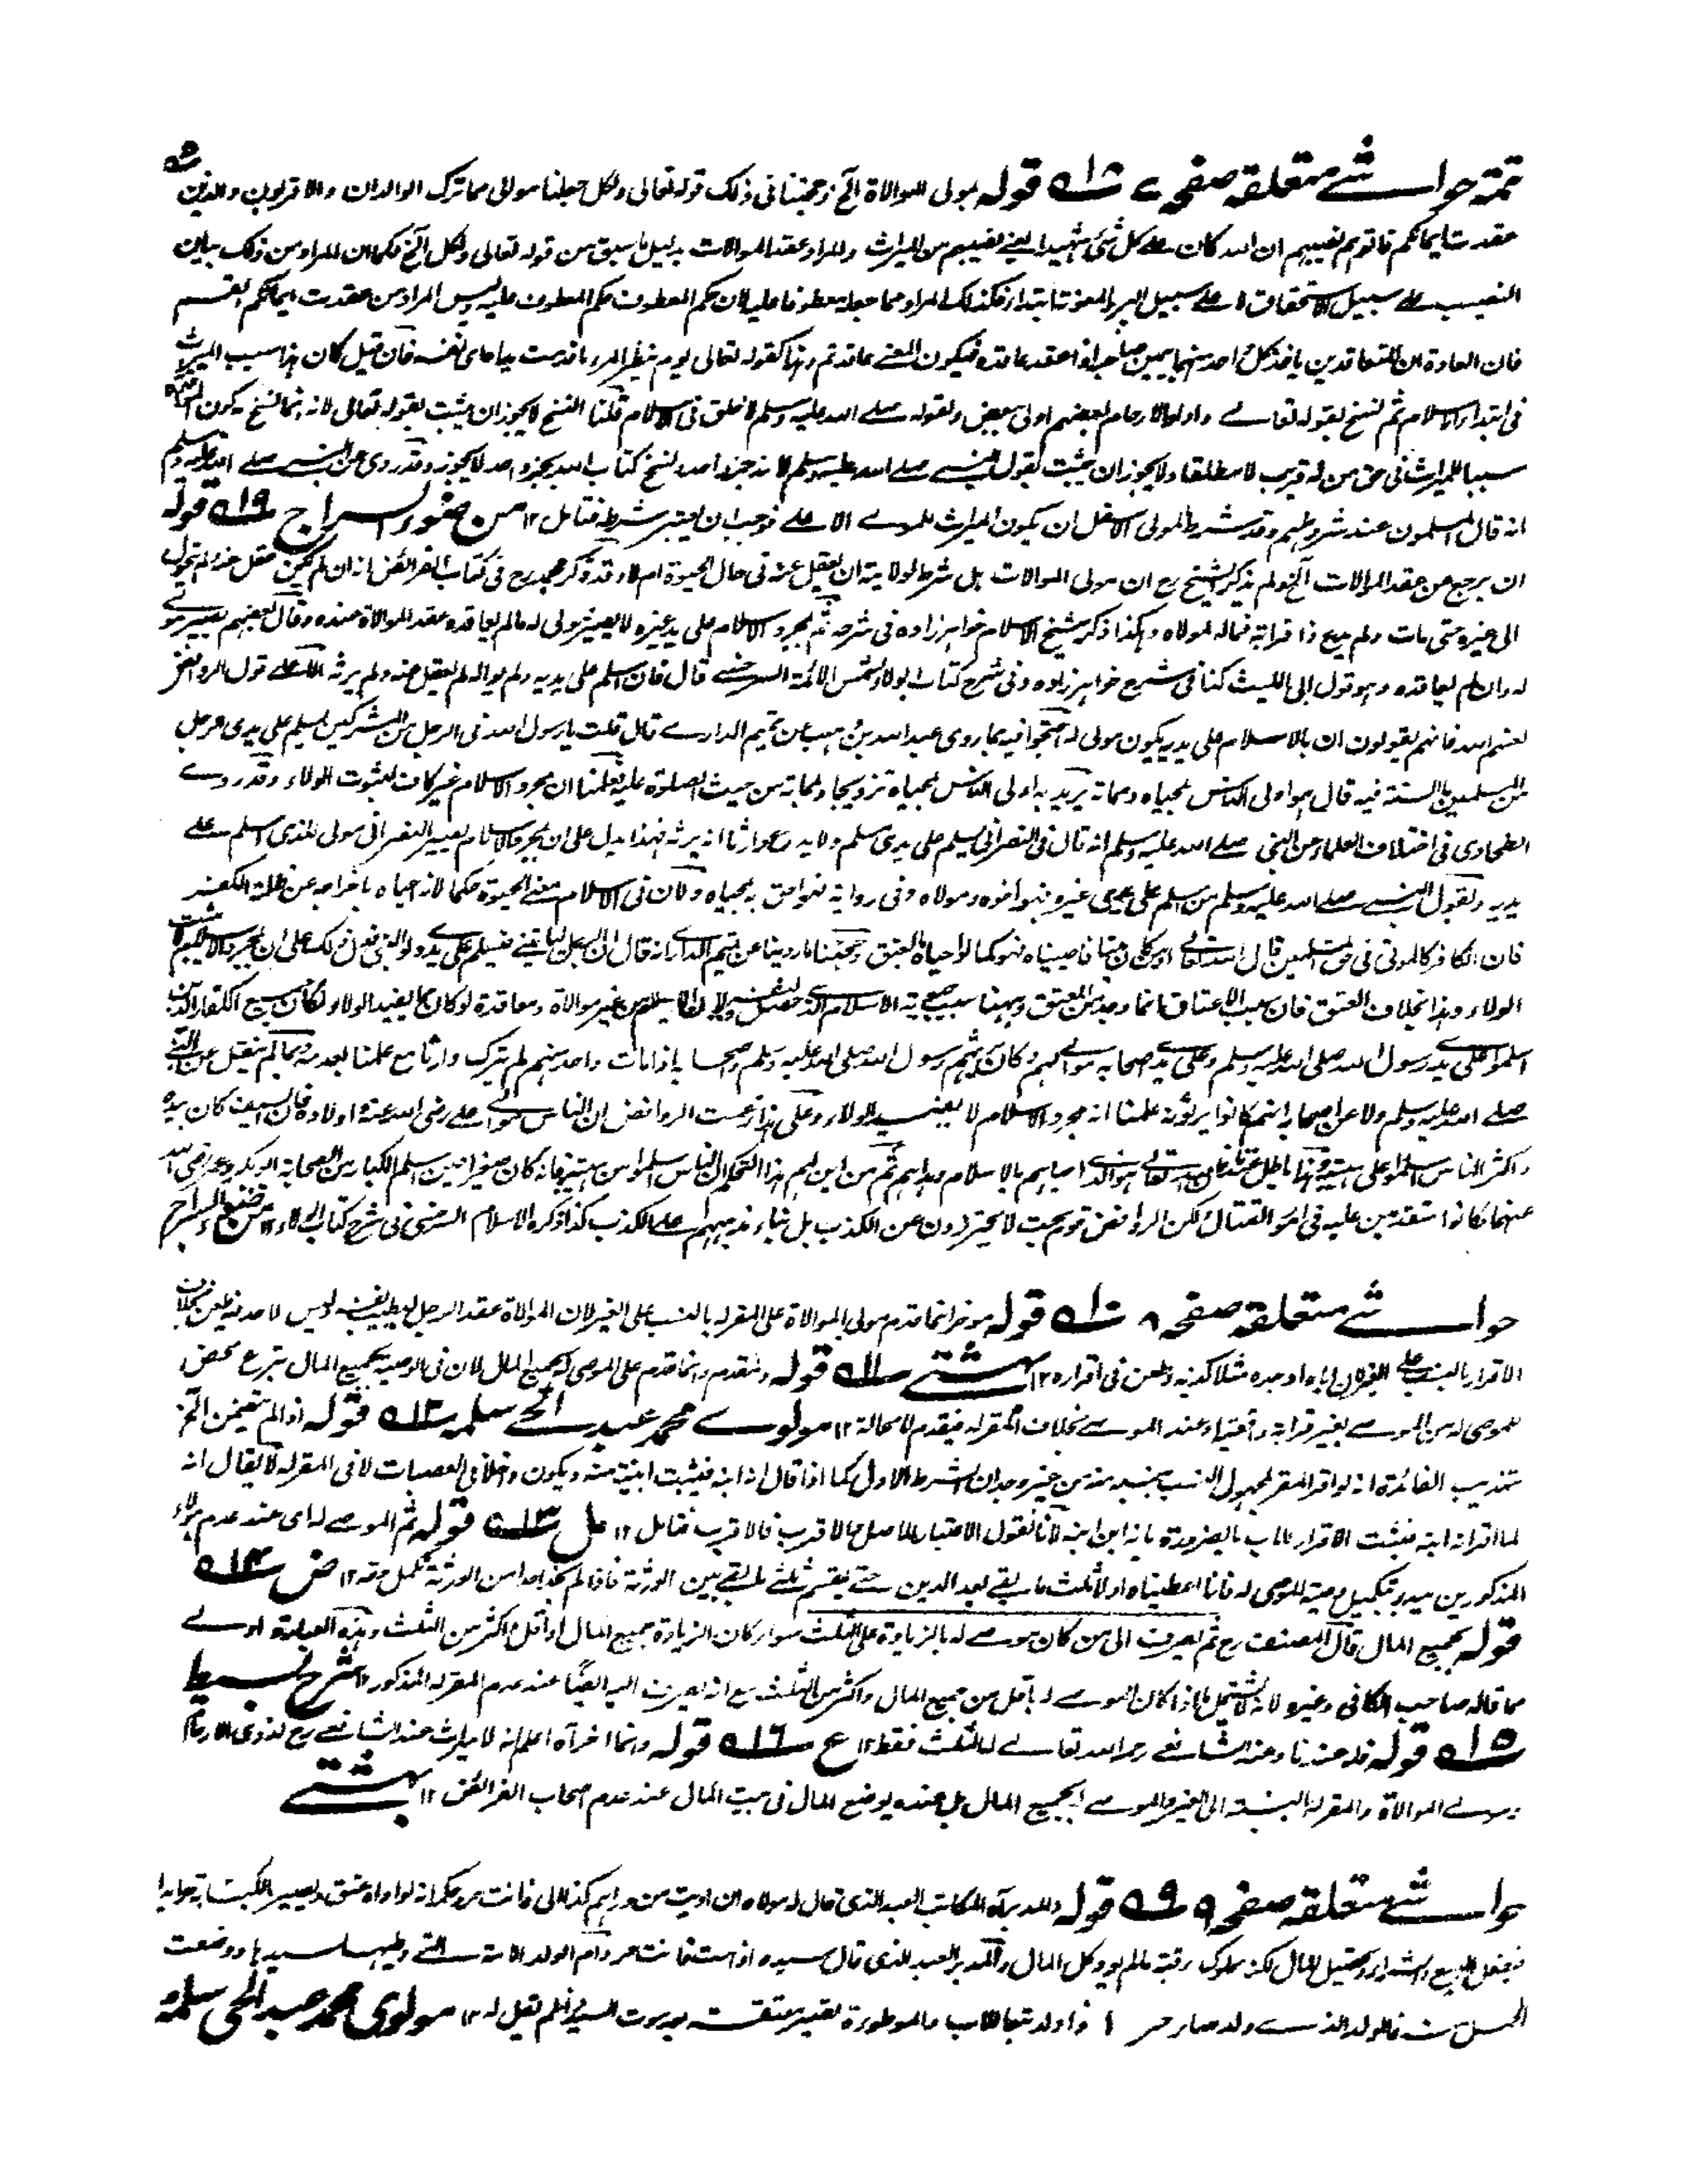 تتمة حواشے متعلقہ صفحہ ۷ ۱۸ قولہ بمولی الموالاة آلخ وحجتنا فی ذلک قوله تعالی ولکل جعلنا موالی مما ترک الوالدان والاقربون والذین
عقدت ایمانکم فاتوهم نصیبهم ان الله کان علے کل شئ شهیدا یعنے نصیبهم من المیراث والمراد عقد الموالات بدلیل ما سبق من قوله تعالی ولکل آلخ فکما ان المراد من ذلک بیان
النصیب علے سبیل الاستحقاق لا علے سبیل البر والمعونة ابتداء فکذلک المراد مما جعله معطوفا علیه لان حکم المعطوف حکم المعطوف علیه ولیس المراد من عقدت ایمانکم القسم
فان العادة ان المتعاقدین یاخذ کل احد منهما یمین صاحبه اذا عقد عاقده فیکون المعنے عاقدتم وهذا کقوله تعالی یوم ینظر المرء ما قدمت یداه ای نفسه فان قیل کان هذا سبب المیراث
فی ابتداء الاسلام ثم نسخ بقوله تعالے واولوا الارحام بعضهم اولی ببعض ولقوله صلے الله علیه وسلم لا حلف فی الاسلام قلنا النسخ لا یجوز ان یثبت بقوله تعالی لانه انما نسخ کون
سببا للمیراث فی حق من له قریب لا مطلقا ولا یجوز ان یثبت بقول النبے صلے الله علیه وسلم لانه خبر واحد ونسخ کتاب الله بخبر واحد لا یجوز وقد روی عن النبے صلے الله علیه وسلم
انه قال المسلمون عند شروطهم وقد شرط المولی الاسفل ان یکون المیراث للمولے الاعلے فوجب ان یعتبر شرطه فتامل ۱۲ من ضوء السراج ۱۹ قولہ
ان یرجع عن عقد الموالات آلخ ولم یذکر الشیخ رح ان مولی الموالات هل شرط لولایته ان یعقل عنه فی حال الحیوة ام لا وقد ذکر محمد رح فی کتاب الفرائض انه ان لم یکن عقل عنه ولم یتحول
الی غیره حتی مات ولم یدع ذا قرابة فماله لمولاه وهکذا ذکر شیخ الاسلام خواهر زاده فی شرحه ثم بمجرد الاسلام علی ید غیره لا یصیر مولی له ما لم یعاقده عقد الموالاة عنده وقال بعضهم یصیر مولے
له وان لم یعاقده وهو قول ابی اللیث کذا فی شرح خواهر زاده وفی شرح کتاب الولاء لشمس الائمة السرخسے قال فان اسلم علی یدیه ولم یواله لم یعقل عنه ولم یرثه الا علے قول الروافض
لعنهم الله فانهم یقولون ان بالاسلام علی یدیه یکون مولی له احتجوا فیه بما روی عبد الله بن موهب عن تمیم الدارے قال قلت یا رسول الله فی الرجل من المشرکین یسلم علی یدی رجل
من المسلمین ما السنة فیه قال هو اولی الناس بمحیاه ومماته یرید به اولی الناس بمحیاه تزویجا وبمماته من حیث الصلوة علیه فعلمنا ان مجرد الاسلام غیر کاف لثبوت الولاء وقد روے
الطحاوی فی اختلاف العلماء عن النبی صلے الله علیه وسلم انه قال فی النصرانی یسلم علی یدی مسلم ولا یدع وارثا انه یرثه فهذا یدل علی ان بمجرد الاسلام یصیر النصرانی مولی للذی اسلم علے
یدیه ولقول النبے صلے الله علیه وسلم من اسلم علی یدی غیره فهو اخوه ومولاه وفی روایة فهو احق به محیاه ولان فی الاسلام معنے الحیوة حکما لانه احیاه باخراجه عن ظلمة الکفر
فان الکافر کالموتی فی حق المسلمین قال الله تعالے اومن کان میتا فاحییناه فهو کما لو احیاه بالعتق وحجتنا ما روینا عن تمیم الدارے
الولاء وهذا بخلاف العتق فان سبب الاعتاق انما وجد من المعتق
اسلموا علی ید رسول الله صلی الله علیه وسلم وعلی ید صحابه موالے لهم وکان یرثهم رسول الله صلی الله علیه وسلم واصحابه اذا مات واحد منهم لم یترک وارثا مع علمنا بعدمه فیما لم ینقل عن النبے
صلے الله علیه وسلم ولا عن اصحابه انهم کانوا یرثونه علمنا ان مجرد الاسلام لا یفید الولاء وعلی هذا زعمت الروافض ان الناس موالے علے رضی الله عنه واولاده فان السیف کان بیده
واکثر الناس اسلموا علی هیبته وهذا باطل عندنا فان الله تعالے هو الذے احیاهم بالاسلام وهداهم ثم من این لهم هذا التحکم ان الناس اسلموا من هیبته فانه کان صغیرا حین اسلم الکبار من الصحابة ابو بکر وعمر رضی الله
عنهما وکانوا متقدمین علیه فی امر القتال لکن الروافض قوم بهت لا یحترزون عن الکذب بل بناء مذهبهم علے الکذب کذا ذکره الامام السرخسی فی شرح کتاب الولاء ۱۲ من ضوء السراج
حواشے متعلقہ صفحہ ۸ ۱۰ قولہ مؤخر انما قدم مولی الموالاة علی المقر له بالنسب علی الغیر لان الموالاة عقد الرجل بطیب نفسه ولیس لاحد فیه طعن بخلاف
الاقرار بالنسب علے الغیر لان اباه او جده مثلا کذبه وطعن فی اقراره ۱۲ بهشتے ۱۱ قولہ ومقدم وانما قدم علی الموصی له بجمیع المال لان فی الوصیة بجمیع المال تبرع محض
للموصی له من الموصے بغیر قرابة واقعیة عند الموصے بخلاف المقر له فیقدم لا محالة ۱۲ مولوے محمد عبد الحے سلمه ۱۲ قولہ اذا لم یتضمن آلخ
تهذیب الفائدة انه لو اقر المقر لمجهول النسب بنسبه منه من غیر وجدان الشرط الاول کما اذا قال انه ابنه فیثبت ابنیته منه ویکون داخلا فی العصبات لا فی المقر له لا یقال انه
لما اقر انه ابنه فیثبت الاقرار بالاب بالضرورة بانه ابن ابنه لانا نقول الاعتبار للاصل فالاقرب فالاقرب فتامل ۱۲ عل ۱۳ قولہ ثم الموصے له ای عند عدم هؤلاء
المذکورین یبدء بتکمیل وصیة الموصی له فانا اعطیناه اولا ثلث ما بقے بعد الدین حتے یقسم ثلثے ما بقے بین الورثة فاذا لم نجد احدا من الورثة نکمل حقه ۱۲ ض ۱۴
قولہ بجمیع المال قال المصنف رح ثم یصرف الی من کان موصے له بالزیادة علی الثلث سواء کان الزیادة جمیع المال او اقل او اکثر من الثلث وهذه العبارة اولے
مما قاله صاحب الکافی وغیره لانه لا یشتمل ما اذا کان الموصے له باقل من جمیع المال واکثر من الثلث مع انه یصرف الیه ایضا عند عدم المقر له المذکور ۱۲ شرح بسیط
۱۵ قولہ فله عندنا وعند الشافعے رحمه الله تعالے له الثلث فقط ۱۲ ع ۱۶ قولہ وانما اخرآه اعلم انه لا میراث عند الشافعے رح لذوی الارحام
ومولے الموالاة والمقر له بالنسبة الی الغیر والموصے له بجمیع المال بل عنده یوضع المال فی بیت المال عند عدم اصحاب الفرائض ۱۲ بهشتے
حواشے متعلقہ صفحہ ۹ ۹ قولہ والمدبر آه المکاتب العبد الذی قال له مولاه ان ادیت من دراهم کذا الی فانت حر وحکمه انه لو اداه عتق ویصیر بالکتابة حرا یدا
فیفعل البیع والشراء وتحصیل المال لکنه مملوک رقبة ما لم یود کل المال والمدبر العبد الذی قال سیده اذا مت فانت حر وام الولد الامة التے وطیها سیدها ووضعت
الحمل منه فالولد الذے ولد صار حرا ولد تبعا للاب والموطورة تصیر معتقة بعد موت السید فلم تقیل له ۱۲ مولوی محمد عبد الحی سلمه